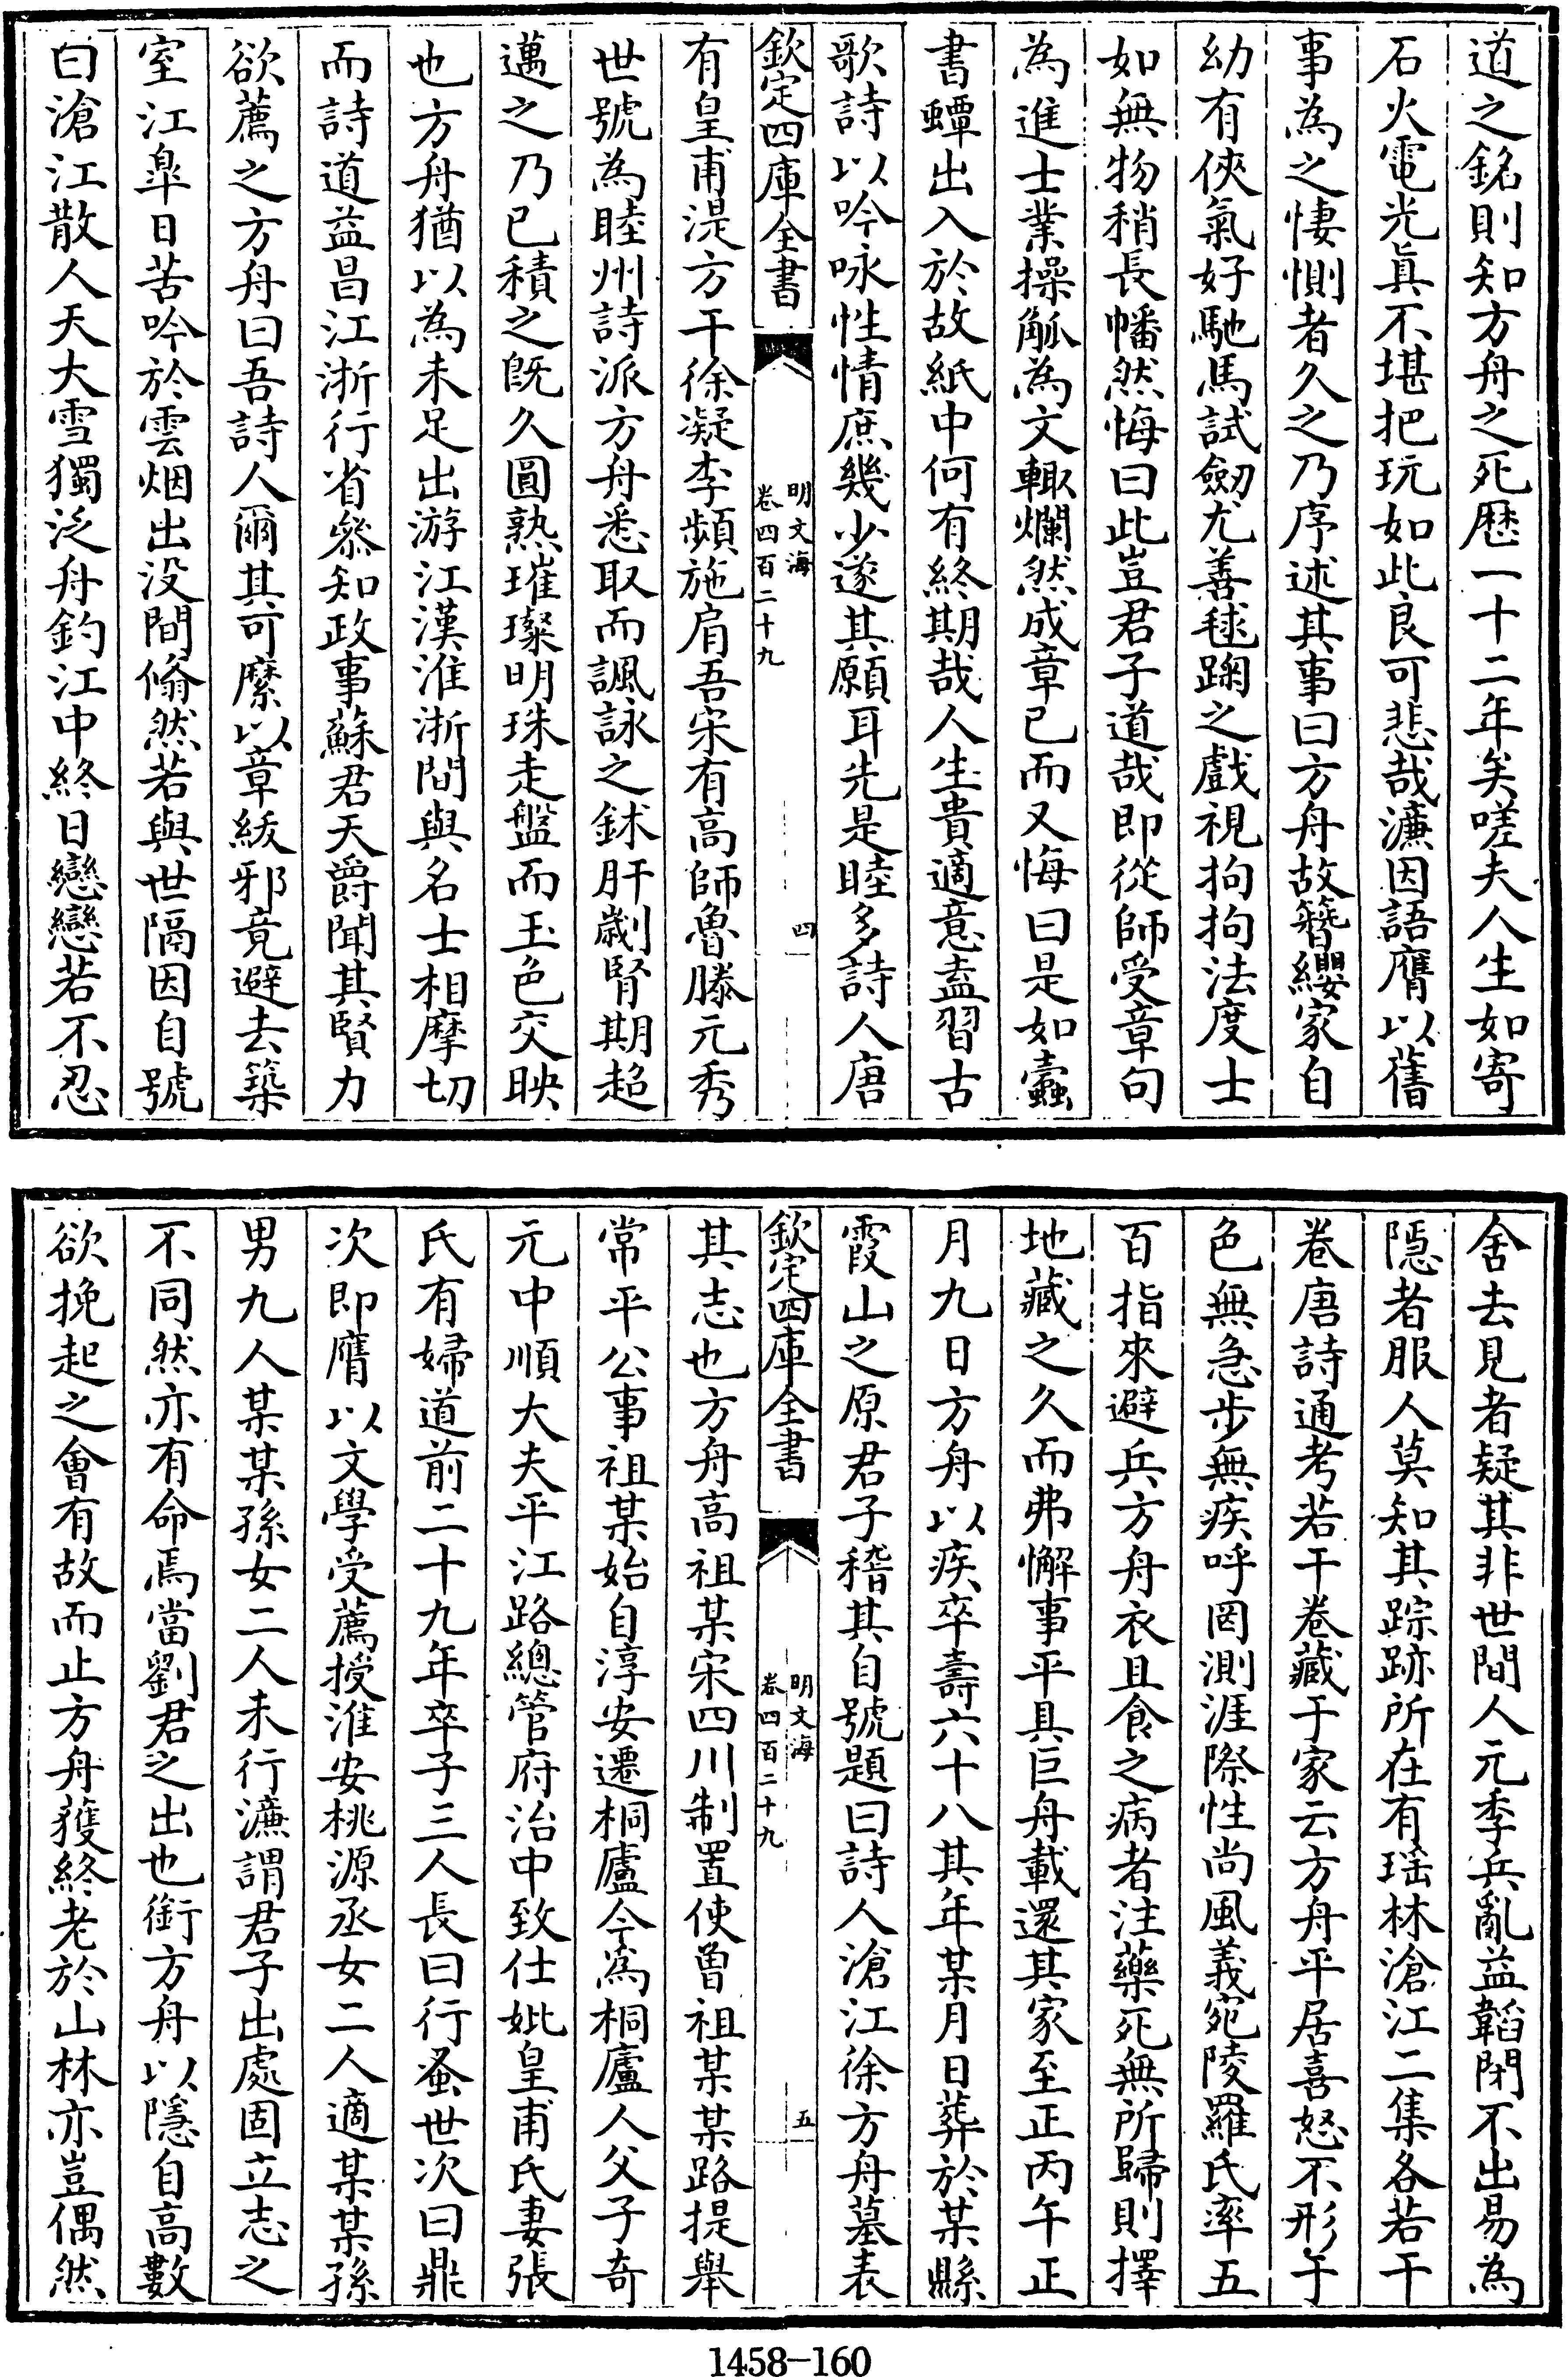 道之銘則知方舟之死歴一十二年矣嗟夫人生如寄
石火電光眞不堪把玩如此良可悲哉濂因語膺以舊
事為之悽惻者久之乃序述其事曰方舟故簪纓家自
幼有俠氣好馳馬試劒尤善毬踘之戲視拘拘法度士
如無物稍長幡然悔曰此豈君子道哉即從師受章句
為進士業操觚為文輙爛然成章已而又悔曰是如蠹
書蟫出入於故紙中何有終期哉人生貴適意盍習古
歌詩以吟咏性情庶幾少遂其願耳先是睦多詩人唐
欽定四庫全書
明文海
卷四百二十九
四
有皇甫湜方干徐凝李頻施肩吾宋有高師魯滕元秀
世號為睦州詩派方舟悉取而諷詠之鉥肝劌腎期超
邁之乃已積之既久圓熟璀璨明珠走盤而玉色交映
也方舟猶以為未足出游江漢淮浙間與名士相摩切
而詩道益昌江浙行省叅知政事蘇君天爵聞其賢力
欲薦之方舟曰吾詩人爾其可縻以章紱邪竟避去築
室江臯日苦吟於雲烟出没間翛然若與世隔因自號
曰滄江散人天大雪獨泛舟釣江中終日戀戀若不忍
舍去見者疑其非世間人元季兵亂益韜閉不出易為
隱者服人莫知其踪跡所在有瑶林滄江二集各若干
卷唐詩通考若干卷藏于家云方舟平居喜怒不形于
色無急步無疾呼罔測涯際性尚風義宛陵羅氏率五
百指來避兵方舟衣且食之病者注藥死無所歸則擇
地藏之久而弗懈事平具巨舟載還其家至正丙午正
月九日方舟以疾卒壽六十八其年某月日葬於某縣
霞山之原君子稽其自號題曰詩人滄江徐方舟墓表
欽定四庫全書
明文海
卷四百二十九
五
其志也方舟高祖某宋四川制置使曾祖某某路提舉
常平公事祖某始自淳安遷桐廬今為桐廬人父子奇
元中順大夫平江路總管府治中致仕妣皇甫氏妻張
氏有婦道前二十九年卒子三人長曰行蚤世次曰鼎
次即膺以文學受薦授淮安桃源丞女二人適某某孫
男九人某某孫女二人未行濂謂君子出處固立志之
不同然亦有命焉當劉君之出也銜方舟以隱自高數
欲挽起之會有故而止方舟獲終老於山林亦豈偶然
1458-160